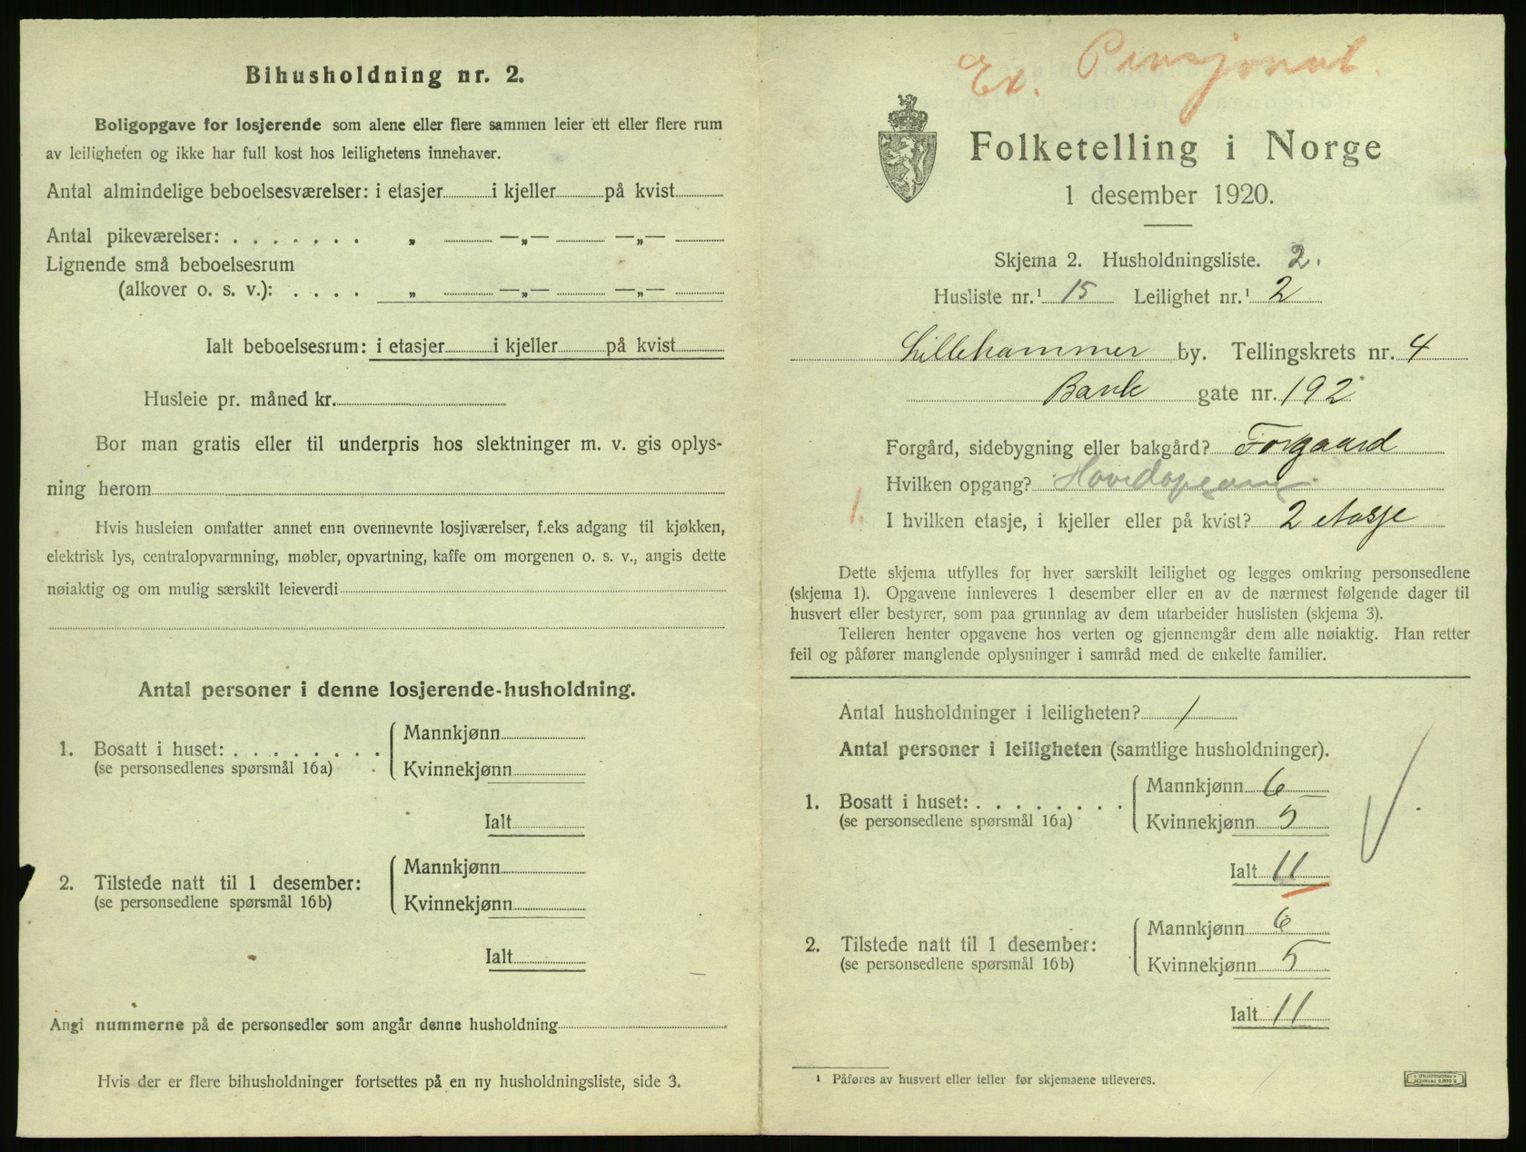 Bihusholdning nr. 2.
Boligopgave for losjerende som alene eller flere sammen leier ett eller flere rum
av leiligheten og ikke har full kost hos leilighetens innehaver.
Antal almindelige beboelsesværelser: i etasjer i kjeller på kvist
Antal pikeværelser: . . . . . . . „ —„— —„—
Lignende små beboelsesrum
(alkover o. s. v.): . . . . „ —„— —„—
Ialt beboelsesrum: i etasjer i kjeller på kvist
Husleie pr. måned kr.
Bor man gratis eller til underpris hos slektninger m. v. gis oplys-
ning herom
Hvis husleien omfatter annet enn ovennevnte losjiværelser, f.eks adgang til kjøkken,
elektrisk lys, centralopvarmning, møbler, opvartning, kaffe om morgenen o. s. v., angis dette
nøiaktig og om mulig særskilt leieverdi
Antal personer i denne losjerende-husholdning.
1. Bosatt i huset: . . . . . . . .
(se personsedlenes spørsmål 16a)
Mannkjønn
Kvinnekjønn
Ialt
2. Tilstede natt til 1 desember:
(se personsedlene spørsmål 16b)
Mannkjønn
Kvinnekjønn
Ialt
Angi nummerne på de personsedler som angår denne husholdning
Hvis der er flere bihusholdninger fortsettes på en ny husholdningsliste, side 3.
Ex. Pensjonat.
Folketelling i Norge
1 desember 1920.
Skjema 2. Husholdningsliste. 2.
Husliste nr.¹ 15 Leilighet nr.¹ 2
Lillehammer by. Tellingskrets nr. 4
gate nr. 192
Forgård, sidebygning eller bakgård? Forgaard
Hvilken opgang? Hovedopgang
1. I hvilken etasje, i kjeller eller på kvist? 2 etasje
Dette skjema utfylles for hver særskilt leilighet og legges omkring personsedlene
(skjema 1). Opgavene innleveres 1 desember eller en av de nærmest følgende dager til
husvert eller bestyrer, som paa grunnlag av dem utarbeider huslisten (skjema 3).
Telleren henter opgavene hos verten og gjennemgår dem alle nøiaktig. Han retter
feil og påfører manglende oplysninger i samråd med de enkelte familier.
Antal husholdninger i leiligheten? 1
Antal personer i leiligheten (samtlige husholdninger).
1. Bosatt i huset: . . . . . . . .
(se personsedlene spørsmål 16a)
Mannkjønn 6
Kvinnekjønn 5
Ialt 11
2. Tilstede natt til 1 desember:
(se personsedlene spørsmål 16b)
Mannkjønn 6
Kvinnekjønn 5
Ialt 11
¹ Påføres av husvert eller teller før skjemaene utleveres.